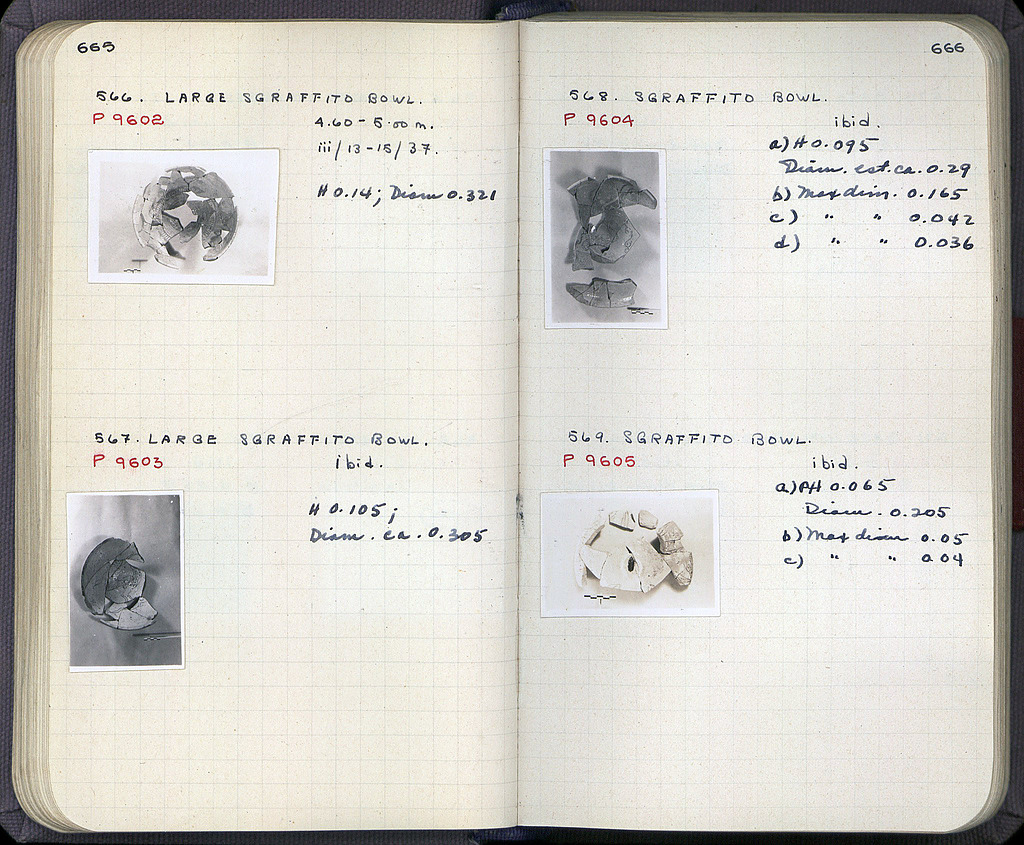 665
566. LARGE SGRAFFITO BOWL.
P 9602
4.60 - 5.00 m.
iii/13-15/37.
H 0.14; Diam 0.321
567. LARGE SGRAFFITO BOWL.
P 9603
ibid.
H 0.105;
Diam. ca. 0.305
666
568. SGRAFFITO BOWL.
P 9604
ibid.
a) H 0.095
Diam. est. ca. 0.29
b) Max dim. 0.165
c) " " 0.042
d) " " 0.036
569. SGRAFFITO BOWL.
P 9605
ibid.
a) PH 0.065
Diam. 0.205
b) Max dim 0.05
c) " " 0.04